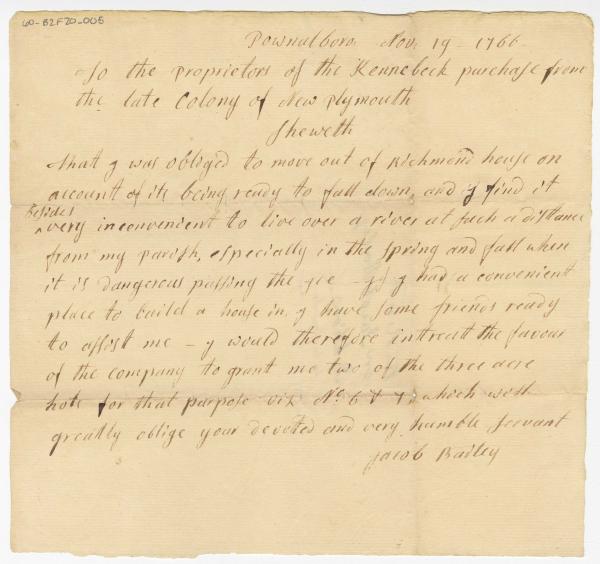 60-B2F20-005
Pownalboro Nov. 19 - 1766
To the Proprietors of the Kennebeck purchase from
the late Colony of New Plymouth
Sheweth
that I was obliged to move out of Richmond house on
account of its being ready to fall down, and I find it
besides
very inconvenient to live over a river at such a distance
from my parish, especially in the spring and fall when
it is dangerous passing the Ice - if I had a convenient
place to build a house in, I have some friends ready
to assist me - I would therefore intreat the favour
of the company to grant me two of the three acre
lots for that purpose viz No. 6 & 7, which will
greatly oblige your devoted and very humble servant
Jacob Bailey